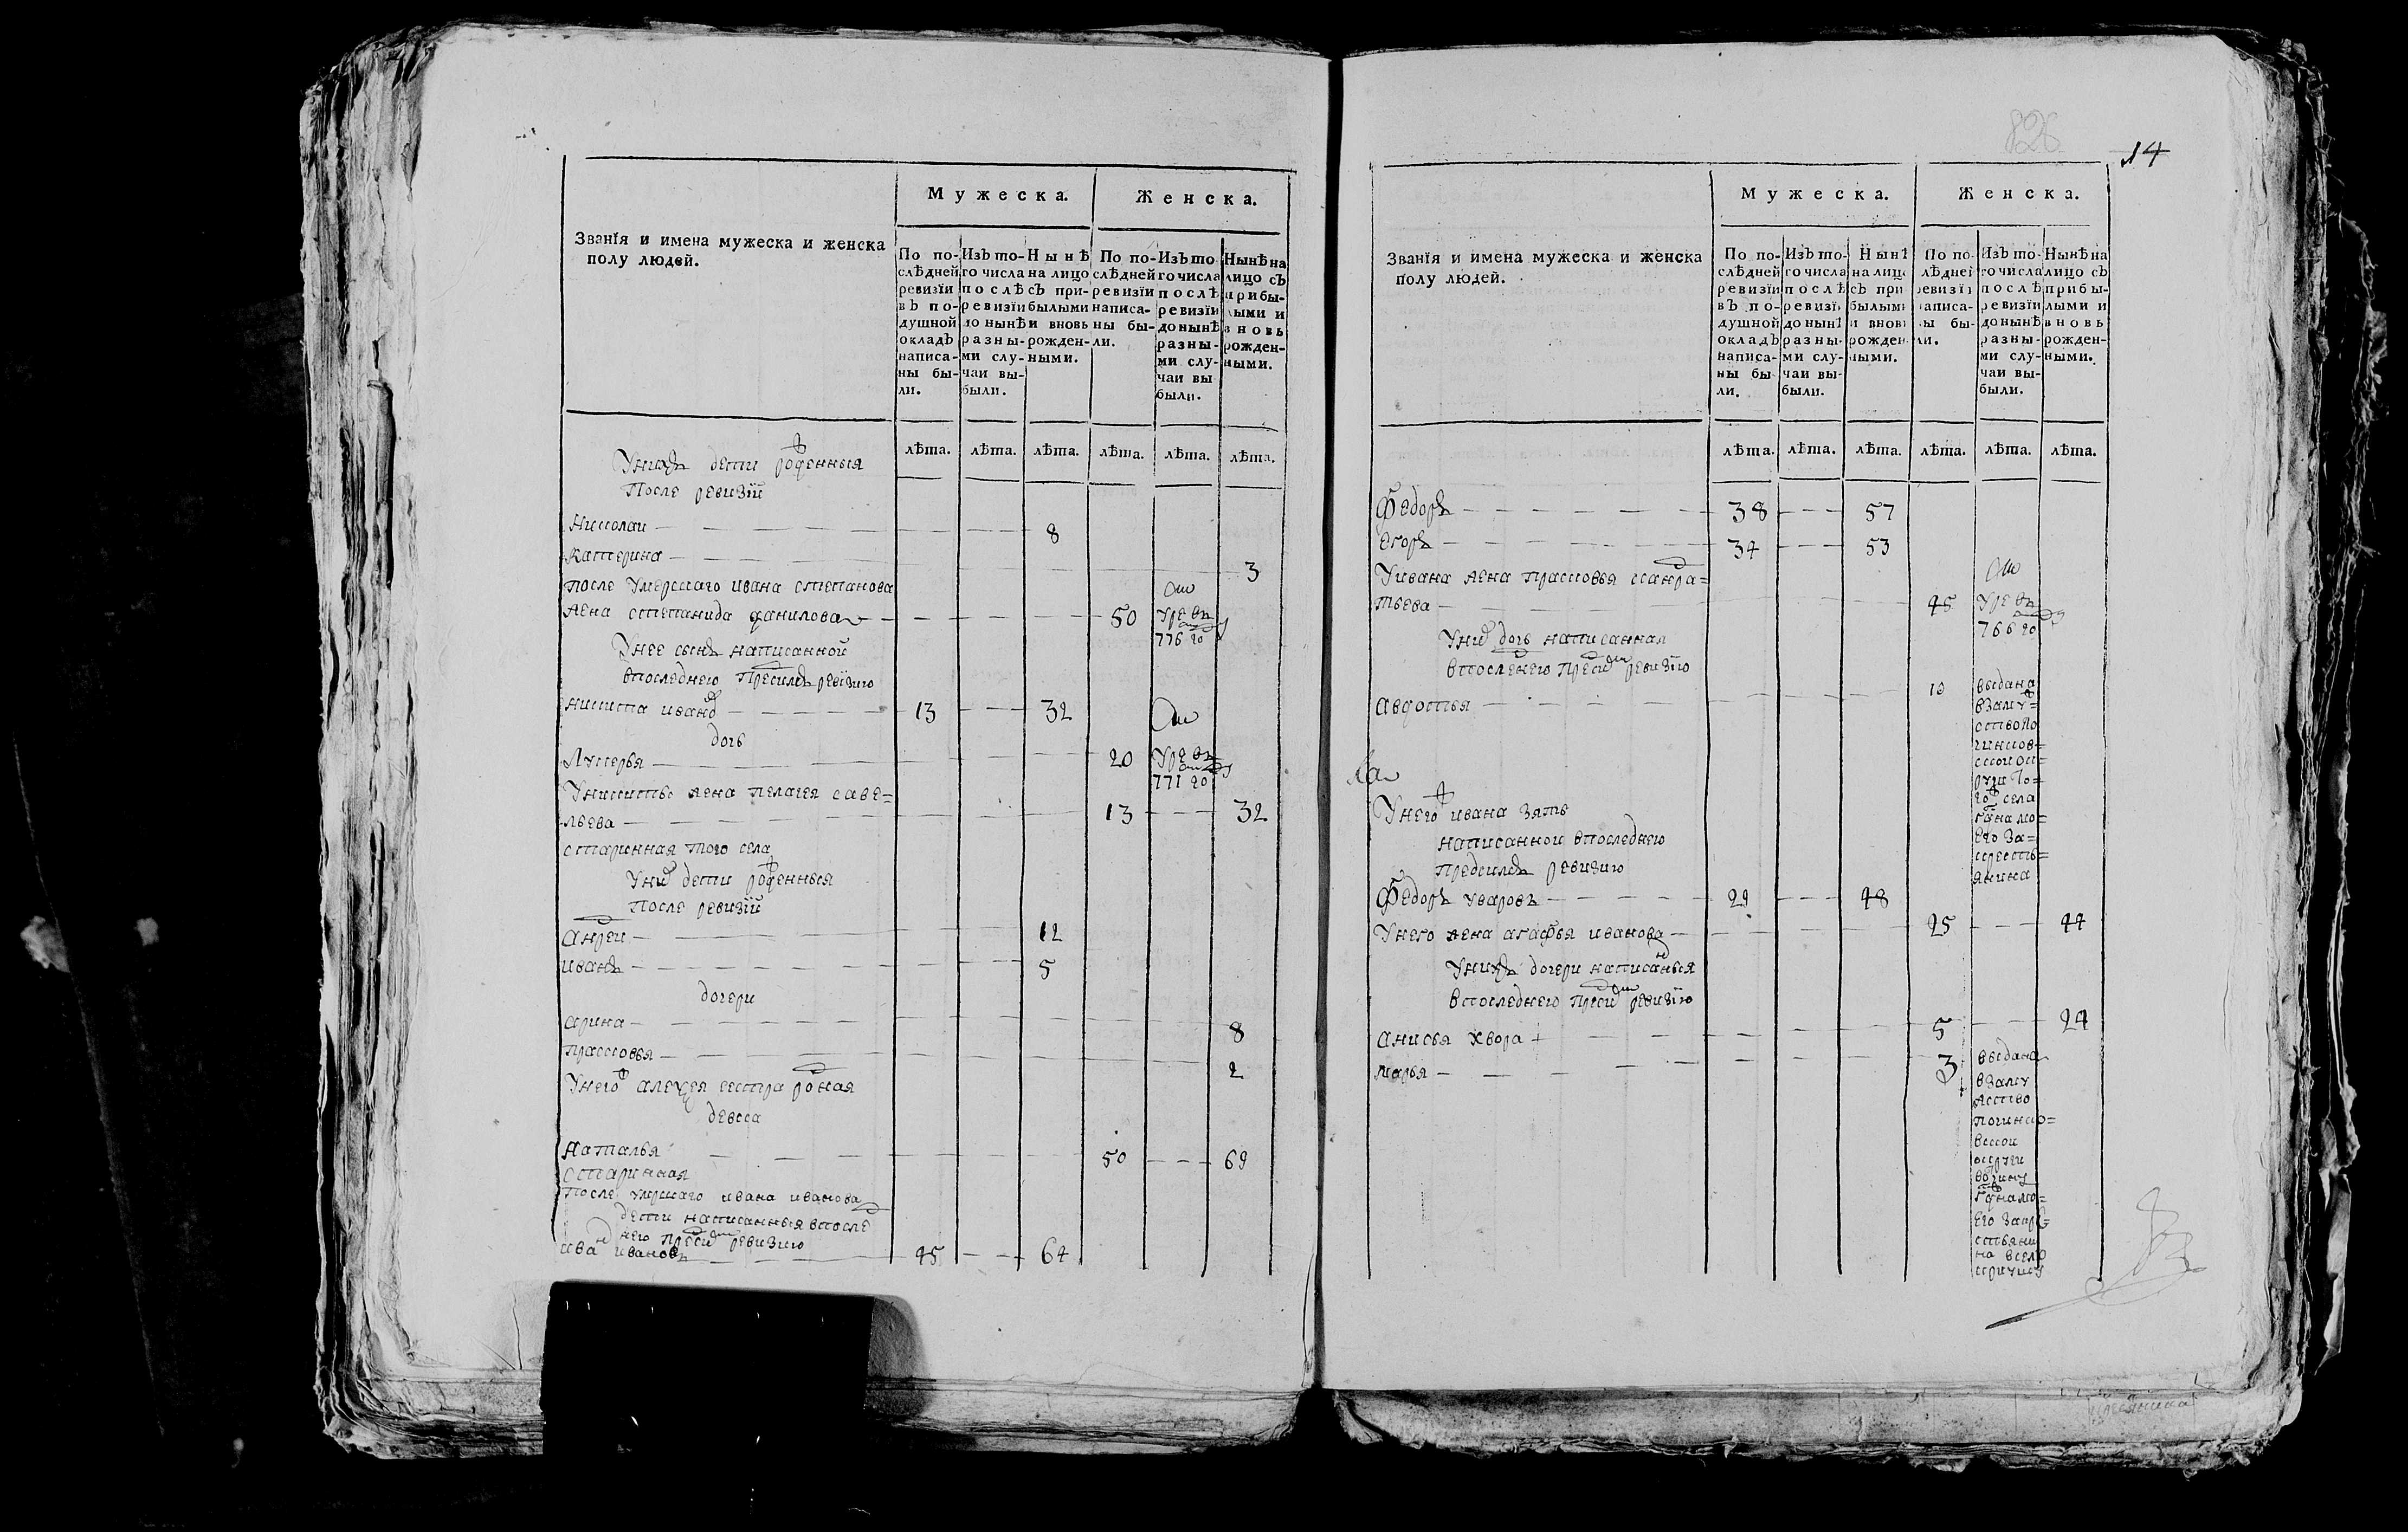 Мужеска.
Женска.
Званїя и имена мужеска и женска
полу людей.
По по-
слѣдней
ревизїи
въ по-
душной
окладъ
написа-
ны бы-
ли.
Изъ то-
го числа
послѣ
ревизїи
до нынѣ
разны-
ми слу-
чаи вы-
были.
Нынѣ
на лицо
съ при-
былыми
и вновь
рожден-
ными.
По по-
слѣдней
ревизїи
написа-
ны бы-
ли.
Изъ то-
го числа
послѣ
ревизїи
до нынѣ
разны-
ми слу-
чаи вы
были.
Нынѣ на
лицо съ
прибы-
лыми и
вновь
рожден-
ными.
лѣта. лѣта. лѣта. лѣта. лѣта. лѣта.
Унихъ дети рожденныя
После ревизїи
Николаи 8
Катерина 3
после умершаго ивана степанова
жена степанида данилова 50
776 го
Унее сынъ написанной
впоследнею ревизию
никита иванов 13 32
дочь
Лукерья 20
771 го
Уникиты жена пелагея саве=
льева 13 32
старинная того села
Уних дети рожденныя
После ревизїи
андреи 12
иванъ 5
дочери
арина 8
прасковья 2
Унего алексея сестра родная
девка
Наталья 50 69
старинная
После умершаго ивана иванова
дети написанныя впосле
днею ревизию
иван ивановъ 45 64
826
14
Мужеска.
Женска.
Званїя и имена мужеска и женска
полу людей.
По по-
слѣдней
ревизїи
въ по-
душной
окладъ
написа-
ны бы
ли.
Изъ то-
го числа
послѣ
ревизї
до нынѣ
разны-
ми слу-
чаи вы-
были.
Нынѣ
на лицо
съ при
былыми
и вновь
рожден
ными.
По по-
лѣдней
ревизї
написа-
ны бы-
ли.
Изъ то-
го числа
послѣ
ревизїи
до нынѣ
разны-
ми слу-
чаи вы-
были.
Нынѣ на
лицо съ
прибы-
лыми и
вновь
рожден-
ными.
лѣта. лѣта. лѣта. лѣта. лѣта. лѣта.
Федоръ 38 57
егоръ 34 53
Уивана жена прасковья кандра=
тьева 45
766 го
Уних дочь написанная
впоследнею ревизию
авдотья 10
выдана
взаму=
ство По
чинков=
ской ок=
руги То=
го села
его за=
кресть=
янина
Унего ивана зять
написанной впоследнею
ревизию
Федоръ уваровъ 29 48
Унего жена агафья иванова 25 44
Унихъ дочери написанныя
впоследнею ревизию
анисья хвора 5 24
марья 3
выдана
взаму
жство
починко=
вской
округи
его закре=
стьяни
на всел